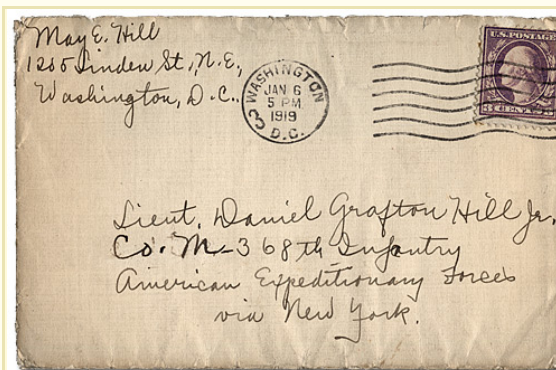 May E. Hill
1205 Linden St., N.E.,
Washington, D.C.,
WASHINGTON
JAN 6
5 PM
1919
D.C.
3
U.S. POSTAGE
3 CENTS 3
Lieut. Daniel Grafton Hill Jr.
Co. M-368th Infantry
American Expeditionary Forces
via New York.